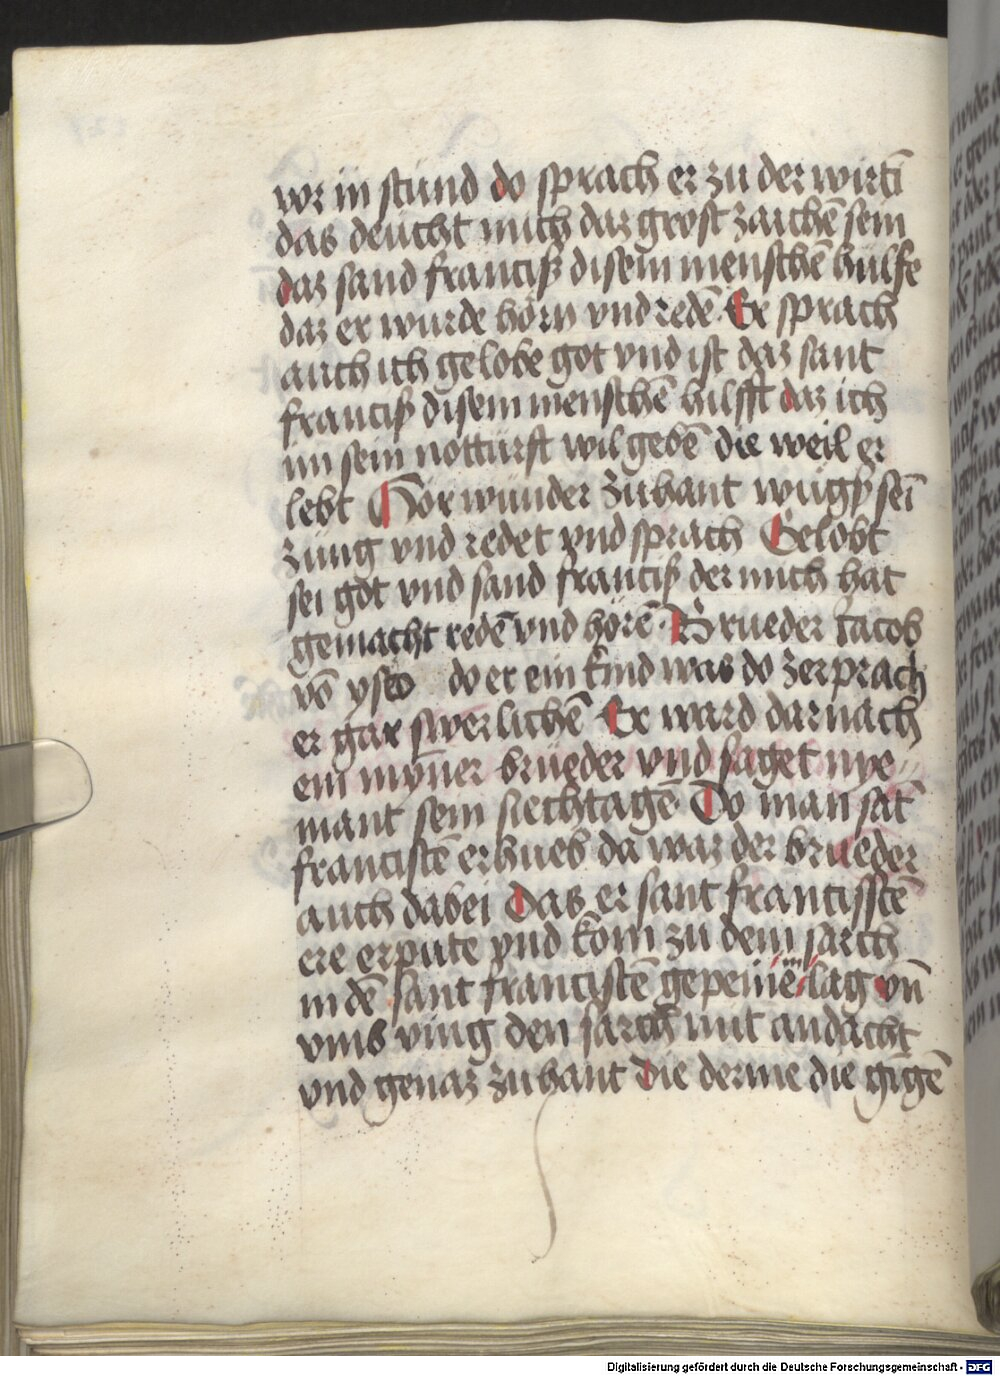 vor in stund do sprach er zu der wirtī
das deucht mich daz grost zaichē sein
daz sand francisß disem menschē hülfe
daz er wurde hörn vnd redē Er sprach
auch ich gelobe got vnd ist daz sant
francisß disem menschē hilfft daz ich
im sein notturft wil gebē die weil er
lebt Hör wunder zuhant wugß sei
zung vnd redet vnd sprach Gelobt
sei got vnd sand francisß der mich hat
gemacht redē vnd hörē Brueder Jacob
vō yseo do er ein kind was do zerprach
er gar swerlichē Er ward dar nach
ein mynner brueder vnd saget nye
mant sein siechtagē Do man sāt
francistē erhueb da waz der brueder
auch dabei Das er sant francisstē
ere erpute vnd kom zu dem sarch
in dē sant francistē gepeinē lag vn̄
vmb ving den sarch mit andacht
vnd genaz zuhant die derme die gigē
Digitalisierung gefördert durch die Deutsche Forschungsgemeinschaft - DFG